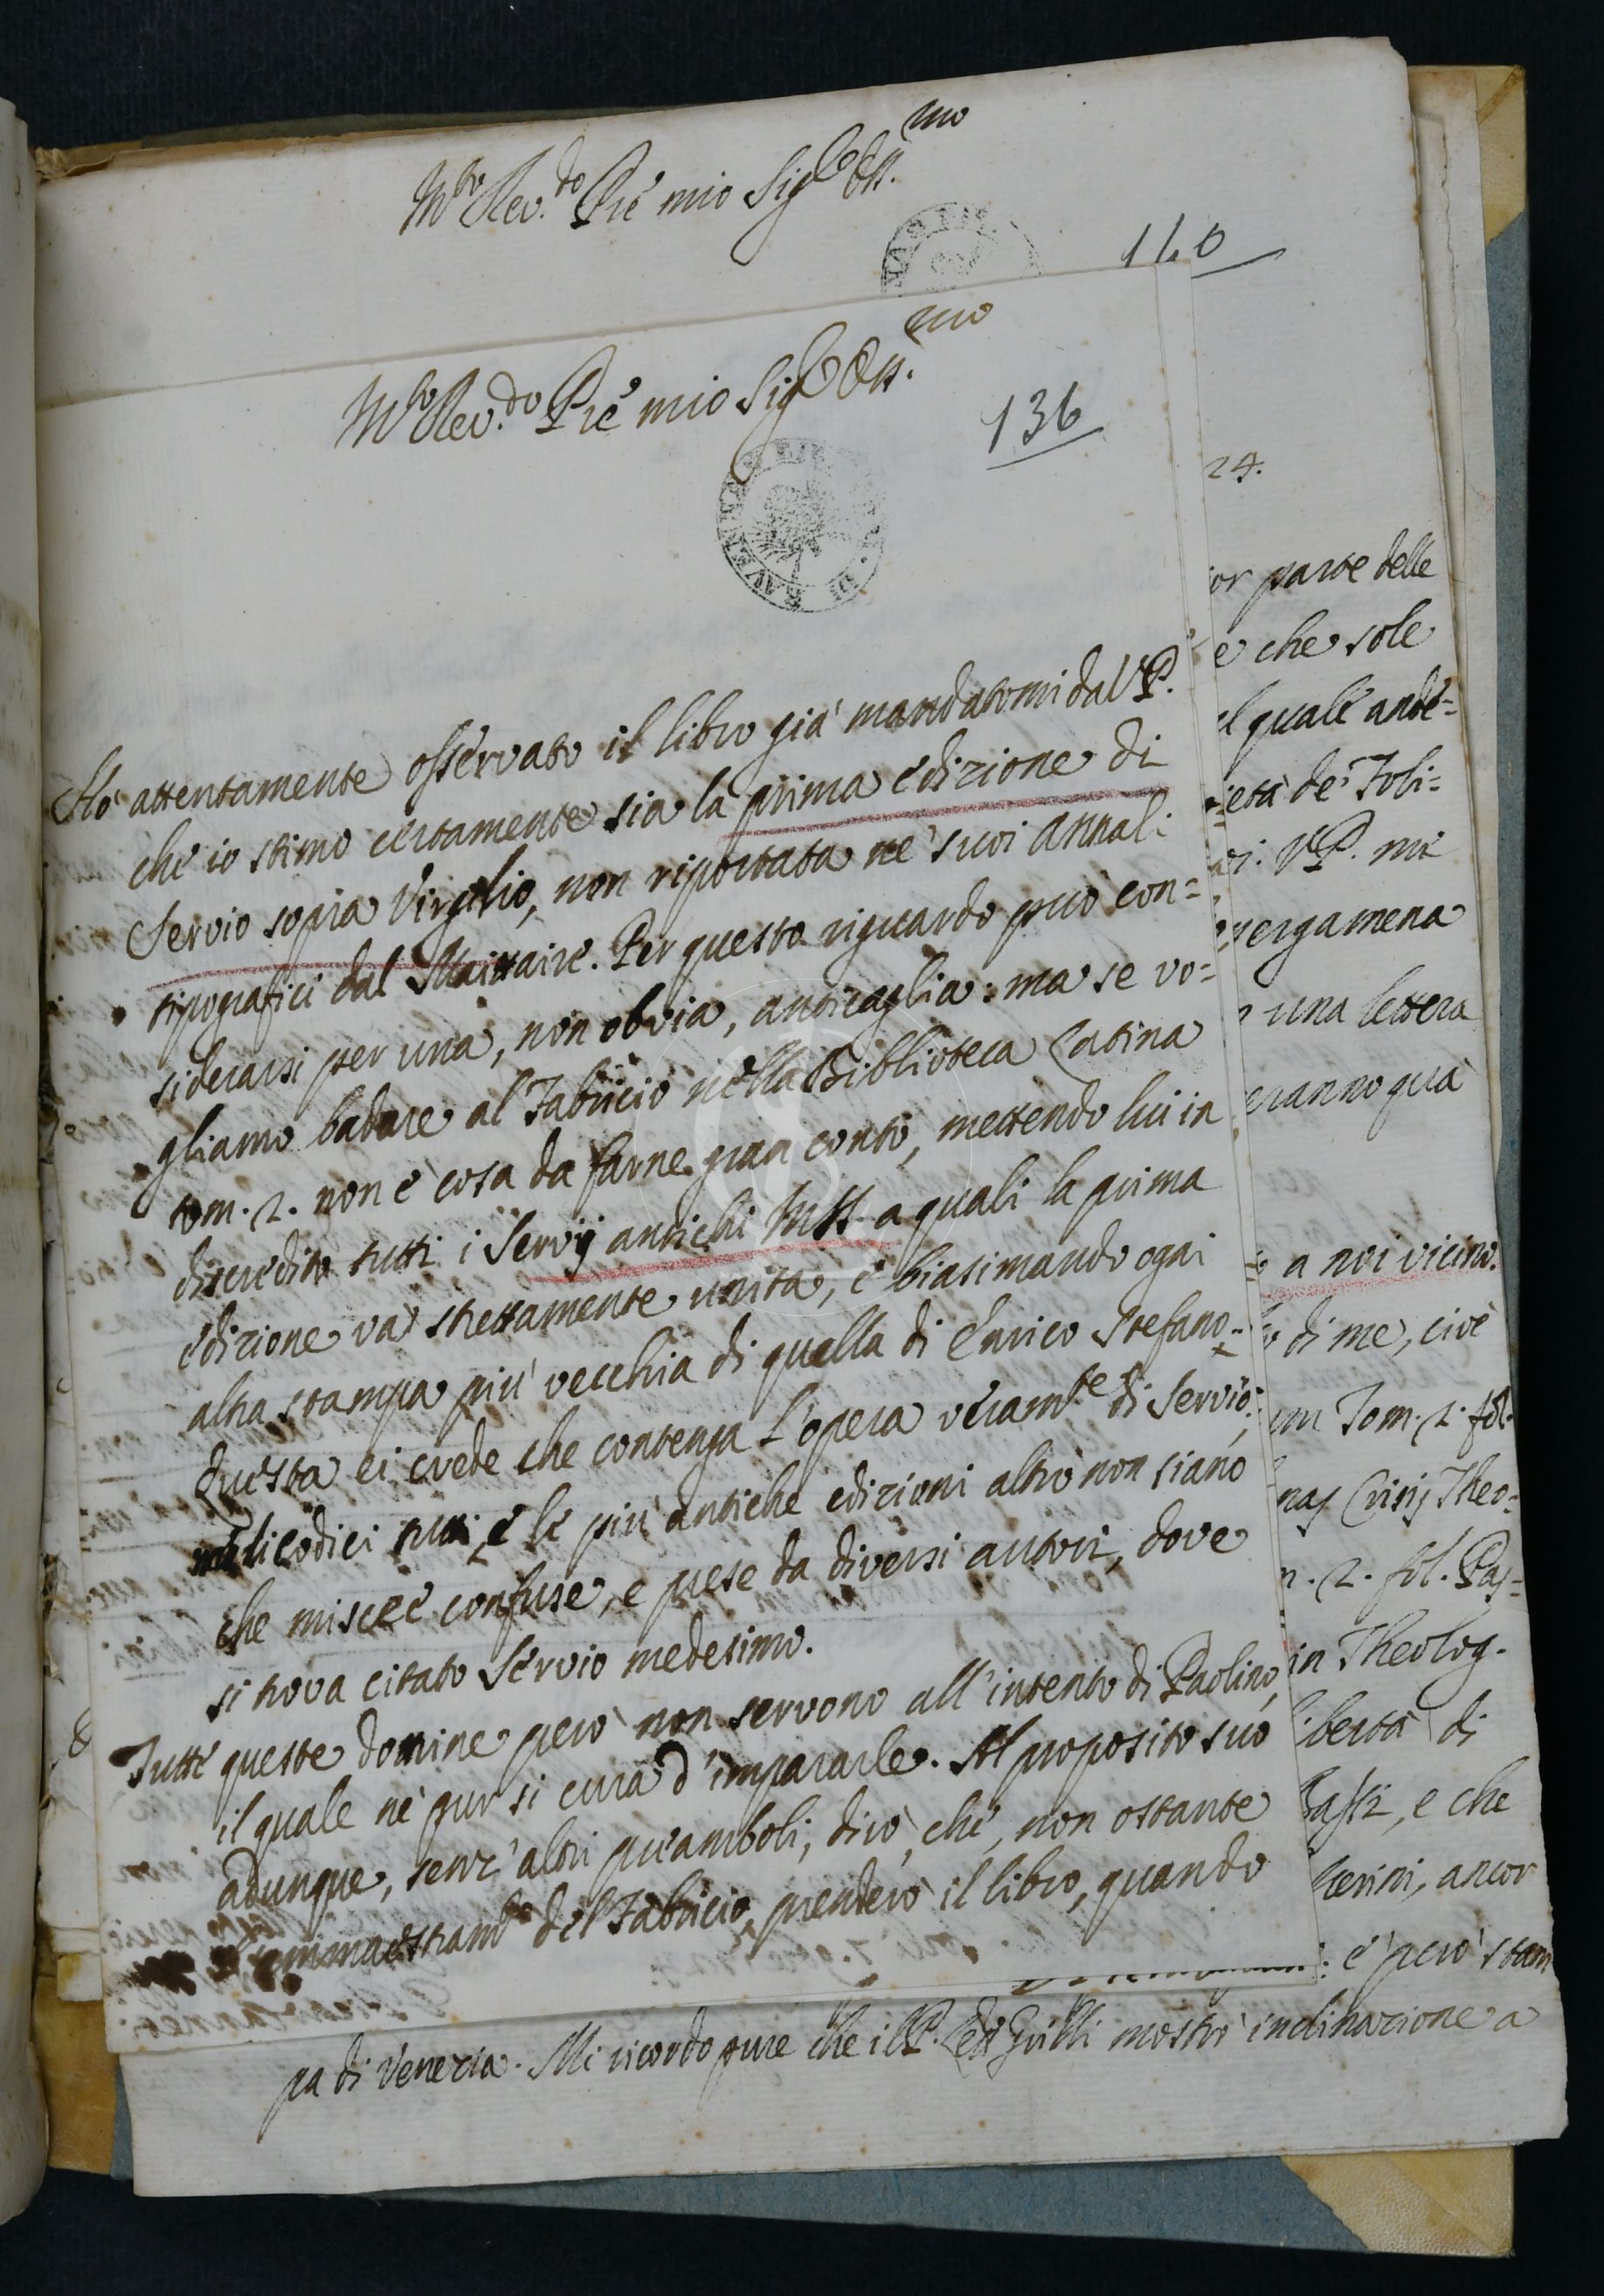 M.to Rev.do P.re mio Sig.re Oss.mo
140
M.to Rev.do P.re mio Sig.re Oss.mo
136
Hò attentamente osservato il libro già mandatomi dal V.P.
che io stimo certamente sia la prima edizione di
Servio sopra Virgilio, non riportata ne' suoi Annali
tipografici dal Maittaire. Per questo riguardo può con=
siderarsi per una, non obvia, anticaglia: ma se vo=
gliamo badare al Fabricio nella Biblioteca Latina
tom. 2. non è cosa da farne gran conto, mettendo lui in
discredito tutti i Servij antichi MSS. a quali la prima
edizione và strettamente unita, e biasimando ogni
altra stampa più vecchia di quella di Enrico Stefano:
Questa ei crede che contenga l'opera veram.te di Servio;
codici e le più antiche edizioni altro non siano
che miscee confuse, e prese da diversi autori, dove
si trova citato Servio medesimo.
Tutte queste dottrine però non servono all'intento di Paolino,
il quale nè pur si cura d'impararle. Al proposito suo
adunque, senz'altri preamboli, dirò, che, non ostante
l'ammaestram.to del Fabricio, prenderò il libro, quando
24.
or parte delle
e che sole
l quale ande=
ietà de' Foli=
V.P. mi
pergamena
una lettera
eranno quà
a noi vicino.
di me, cioè
um Tom. 2. fol.
nas Crisij Theo=
n. 2. fol. Pas=
in Theolog.
ibertà di
Bassi, e che
terini, ancor
: e però stam
pa di Venezia. Mi ricordo pure che il P. mostrò inclinazione a